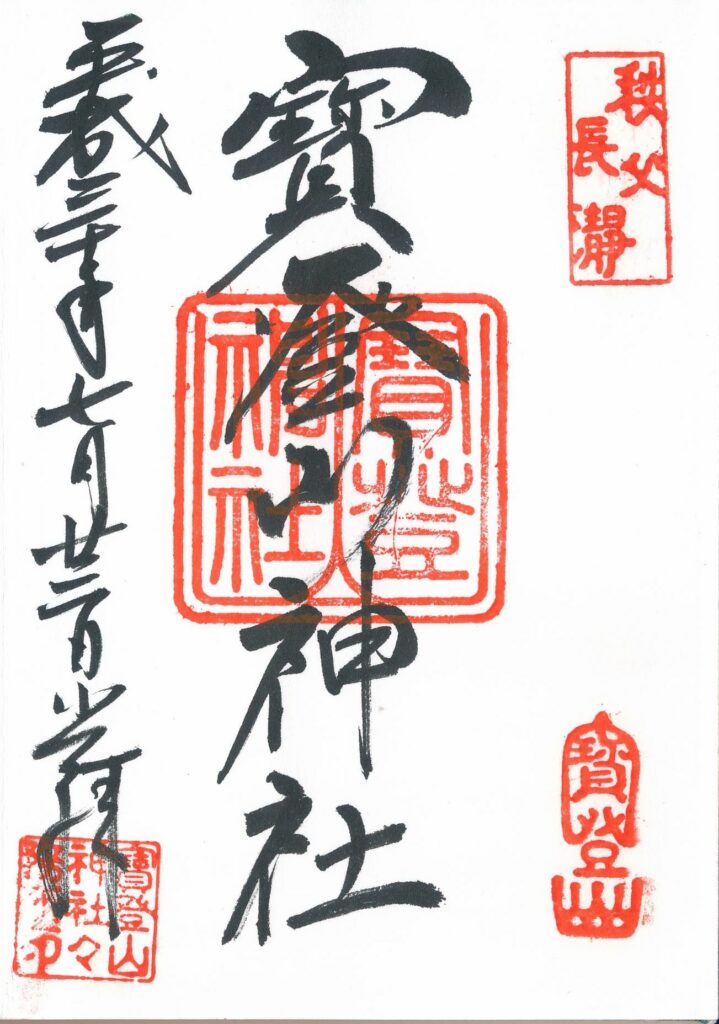 秩父
長瀞
寶登山
寶登山神社
寶登山
神社
平成三十年七月廿二日
寶登山
神社々
務所印